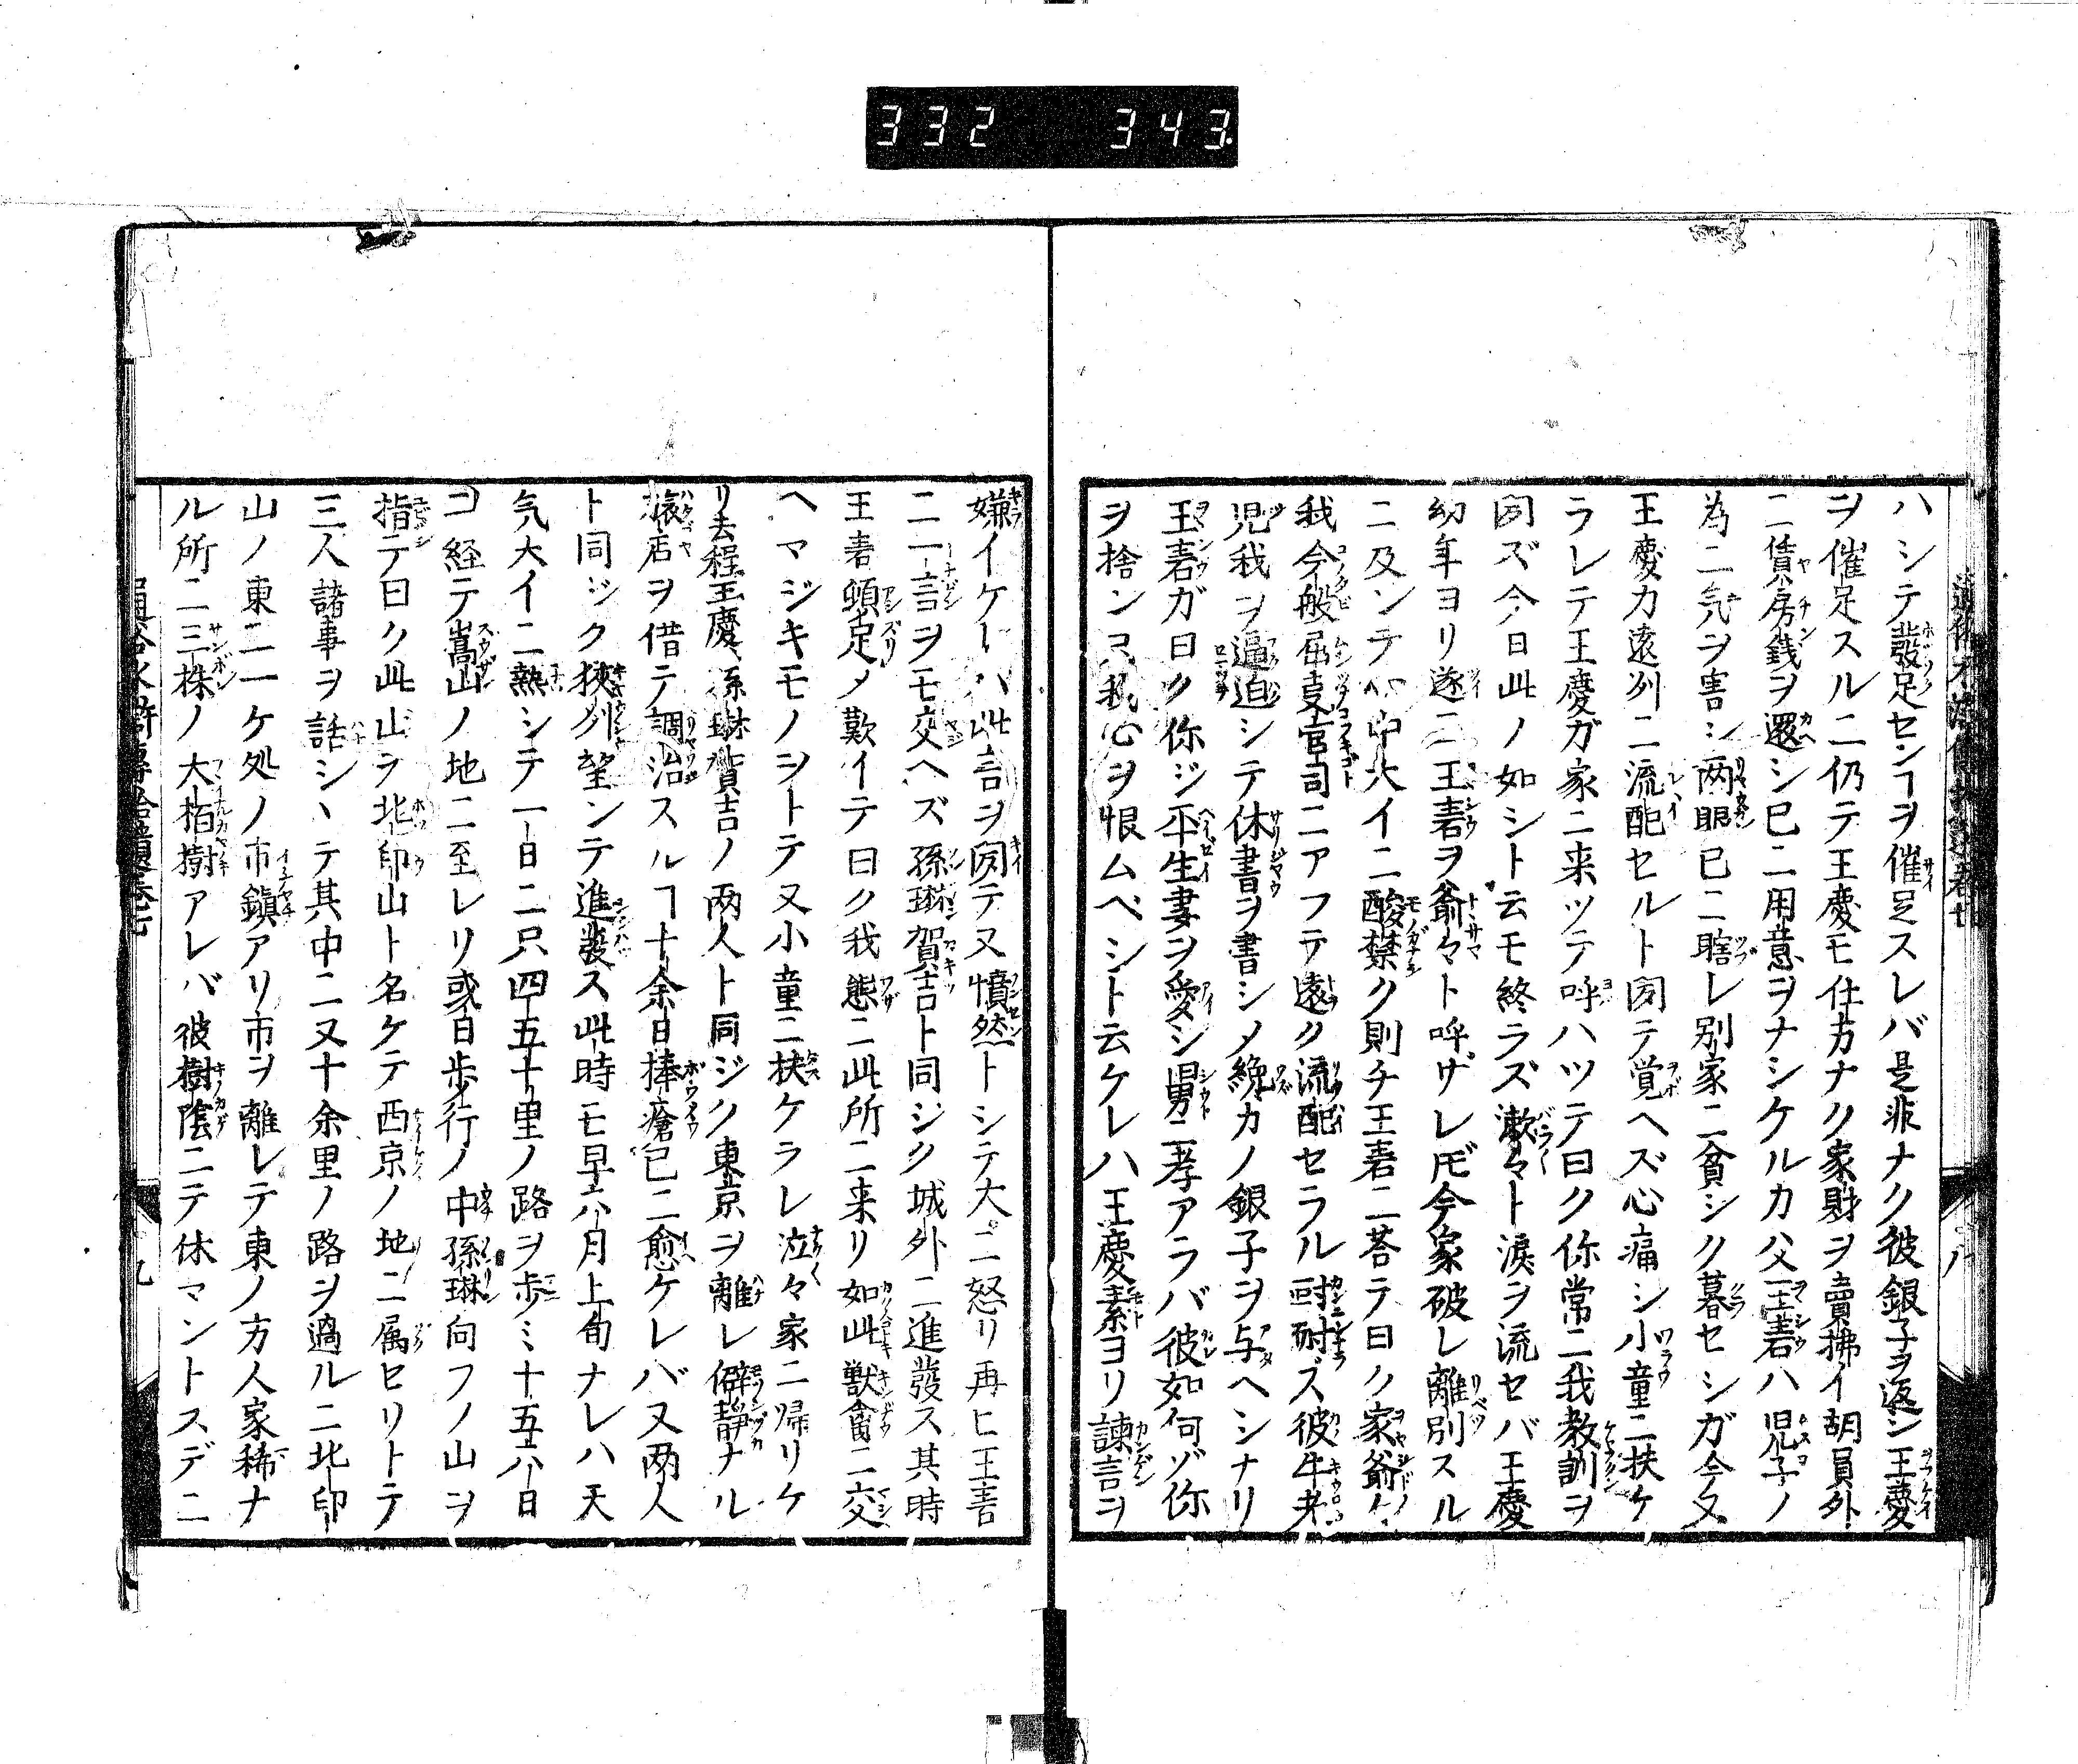 332 343
ハシテ發足センヿヲ催足スレバ是非ナク彼銀子ヲ返シ王慶
ヲ催足スルニ仍テ王慶モ仕方ナク家財ヲ賣拂イ胡員外
ニ賃房銭ヲ還シ已ニ用意ヲナシケルカ父王砉ハ児子ノ
為ニ気ヲ害シ两眼已ニ瞎レ別家ニ貧シク暮セシガ今又
王慶カ遠列ニ流配セルト闻テ覚ヘズ心痛シ小童ニ扶ケ
ラレテ王慶ガ家ニ来ツテ呼ハツテ曰ク你常ニ我教訓ヲ
闻ズ今日此ノ如シト云モ終ラズ漱々ト淚ヲ流セバ王慶
幼年ヨリ遂ニ王砉ヲ爺々ト呼ザレ𪜈今家破レ離別スル
ニ及ンテハ心中大イニ酸楚ク則チ王砉ニ荅テ曰ク家爺ケ
我今般屈支官司ニアフテ遠ク流配セラル叵耐ズ彼牛老
児我ヲ逼迫シテ休書ヲ書シメ纔カノ銀子ヲ与ヘシナリ
王砉ガ曰ク你ジ平生妻ヲ愛シ舅ニ孝アラバ彼如何ゾ你
ヲ捨ン只我心ヲ恨ムベシト云ケレハ王慶素ヨリ諫言ヲ
嫌イケレハ此言ヲ闻テ又憤然トシテ大ニ怒リ再ヒ王砉
ニ一言ヲモ交ヘズ孫琳賀吉ト同ジク城外ニ進發ス其時
王砉頓足メ歎イテ曰ク我態ニ此所ニ来リ如此獣禽ニ交
ヘマジキモノヲトテ又小童ニ扶ケラレ泣々家ニ帰リケ
リ去程王慶孫琳賀吉ノ两人ト同ジク東京ヲ離レ僻静ナル
旅店ヲ借テ調治スルヿ十余日棒瘡已ニ愈ケレバ又两人
ト同ジク狭列望ンテ進發ス此時モ早六月上旬ナレハ天
気大イニ熱シテ一日ニ只四五十里ノ路ヲ歩ミ十五六日
ヲ経テ嵩山ノ地ニ至レリ或日歩行ノ中孫琳向フノ山ヲ
指テ曰ク此山ヲ北印山ト名ケテ西京ノ地ニ属セリトテ
三人諸事ヲ話シヽテ其中ニ又十余里ノ路ヲ過ルニ北印
山ノ東ニ一ケ処ノ市鎮アリ市ヲ離レテ東ノ方人家稀ナ
ル所ニ三株ノ大栢樹アレバ彼樹陰ニテ休マントスデニ
九